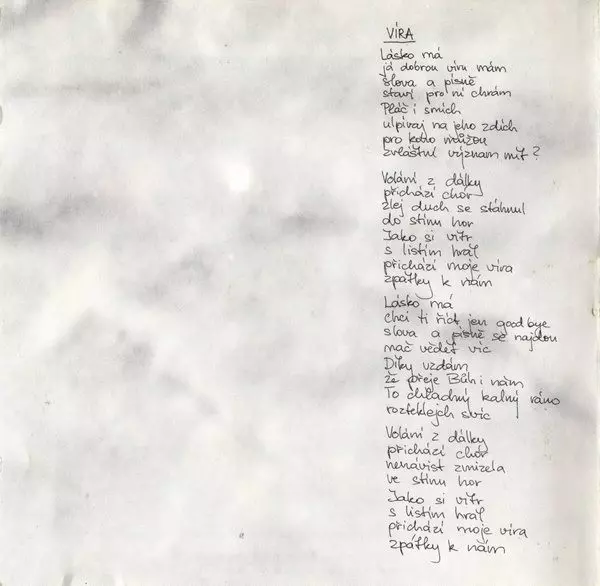 VÍRA
Lásko má
já dobrou víru mám
slova a písně
staví pro ní chrám
Pláč i smích
ulpívaj na jeho zdích
pro koho můžou
zvláštní význam mít?
Volání z dálky
přichází chór
zlej duch se stáhnul
do stínu hor
Jako si vítr
s listím hrál
přichází moje víra
zpátky k nám
Lásko má
chci ti říct jen good bye
slova a písně se najdou
nač vědět víc
Díky vzdám
že přeje Bůh i nám
To chladný kalný ráno
rozteklejch svíc
Volání z dálky
přichází chór
nenávist zmizela
ve stínu hor
Jako si vítr
s listím hrál
přichází moje víra
zpátky k nám